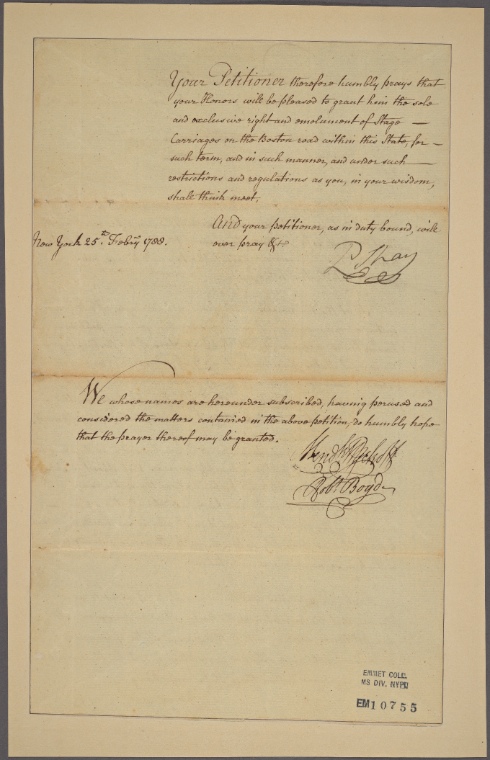 Your Petitioner therefore humbly prays that
your Honors will be pleased to grant him the sole
and exclusive right and emolument of Stage —
Carriages on the Boston road within this State, for —
such term, and in such manner, and under such —
restrictions and regulations as you, in your wisdom,
shall think meet.
And your petitioner, as in duty bound, will
ever pray &c
New York 25th Febry 1788.
We whose names are hereunder subscribed, having perused and
considered the matters contained in the above petition, do humbly hope
that the prayer thereof may be granted.
Robt Boyd
EMMET COLL.
MS DIV. NYPL
EM10755